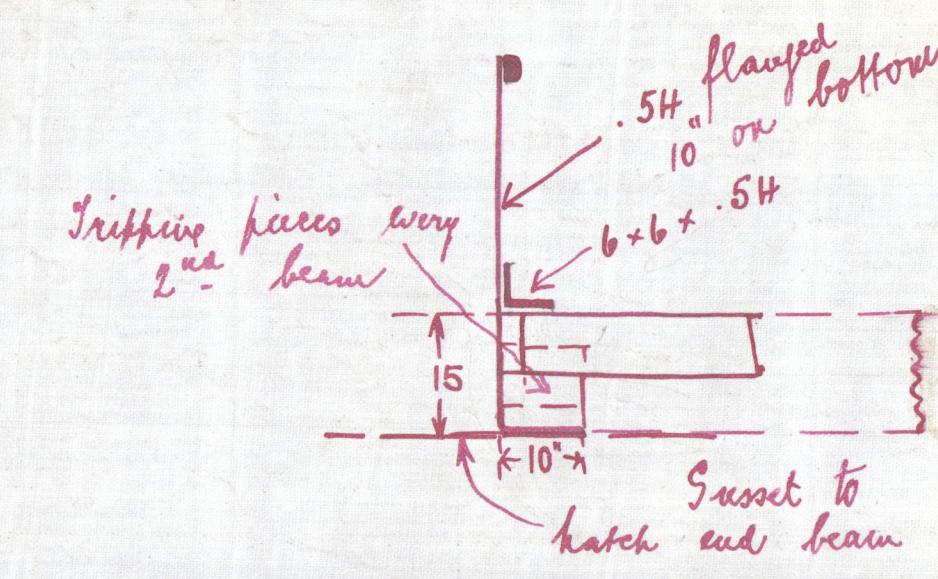 .5H flanged
10" on bottom
6 × 6 × .5H
Tripping pieces every
2nd beam
15
10"
Gusset to
hatch end beam